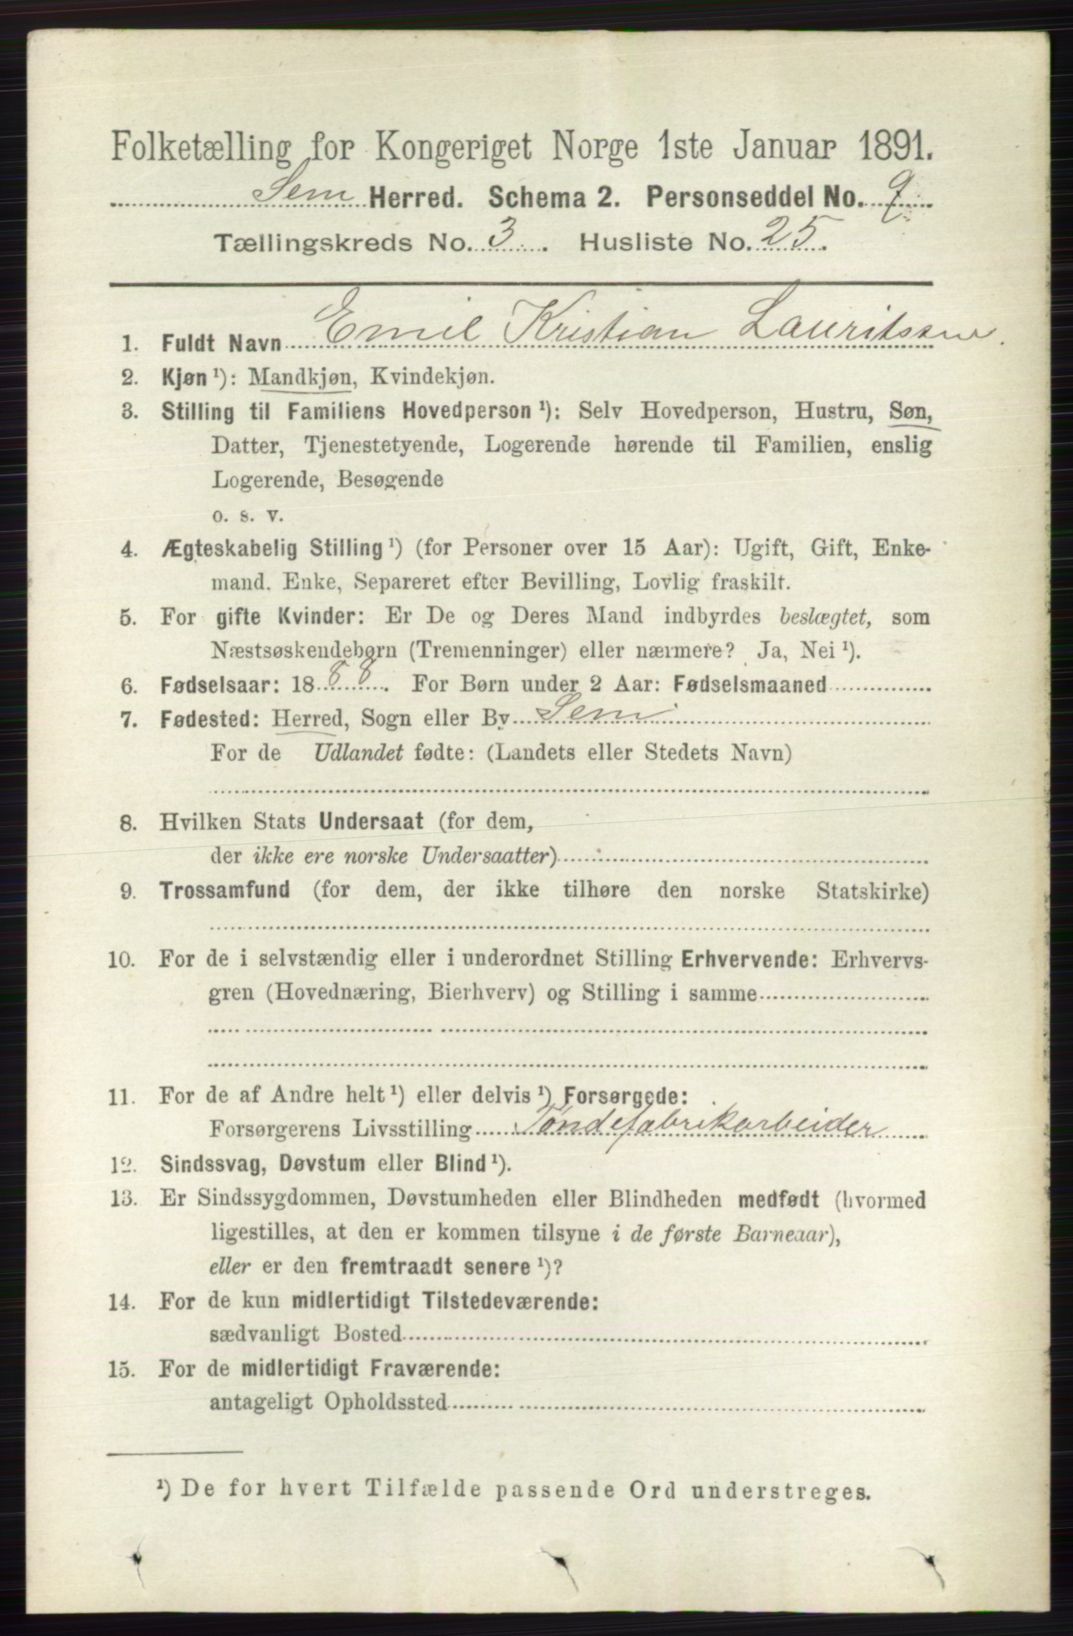 Folketælling for Kongeriget Norge 1ste Januar 1891.
Sem Herred. Schema 2. Personseddel No. 9
Tællingskreds No. 3. Husliste No. 25.
1. Fuldt Navn Emil Kristian Lauritssen.
2. Kjøn ¹): Mandkjøn, Kvindekjøn.
3. Stilling til Familiens Hovedperson ¹): Selv Hovedperson, Hustru, Søn,
Datter, Tjenestetyende, Logerende hørende til Familien, enslig
Logerende, Besøgende
o. s. v.
4. Ægteskabelig Stilling ¹) (for Personer over 15 Aar): Ugift, Gift, Enke-
mand. Enke, Separeret efter Bevilling, Lovlig fraskilt.
5. For gifte Kvinder: Er De og Deres Mand indbyrdes beslægtet, som
Næstsøskendebørn (Tremenninger) eller nærmere? Ja, Nei ¹).
6. Fødselsaar: 1888. For Børn under 2 Aar: Fødselsmaaned
7. Fødested: Herred, Sogn eller By Sem
For de Udlandet fødte: (Landets eller Stedets Navn)
8. Hvilken Stats Undersaat (for dem,
der ikke ere norske Undersaatter)
9. Trossamfund (for dem, der ikke tilhøre den norske Statskirke)
10. For de i selvstændig eller i underordnet Stilling Erhvervende: Erhvervs-
gren (Hovednæring, Bierhverv) og Stilling i samme
11. For de af Andre helt ¹) eller delvis ¹) Forsørgede:
Forsørgerens Livsstilling Tøndefabrikarbeider
12. Sindssvag, Døvstum eller Blind ¹).
13. Er Sindssygdommen, Døvstumheden eller Blindheden medfødt (hvormed
ligestilles, at den er kommen tilsyne i de første Barneaar),
eller er den fremtraadt senere ¹)?
14. For de kun midlertidigt Tilstedeværende:
sædvanligt Bosted
15. For de midlertidigt Fraværende:
antageligt Opholdssted
¹) De for hvert Tilfælde passende Ord understreges.